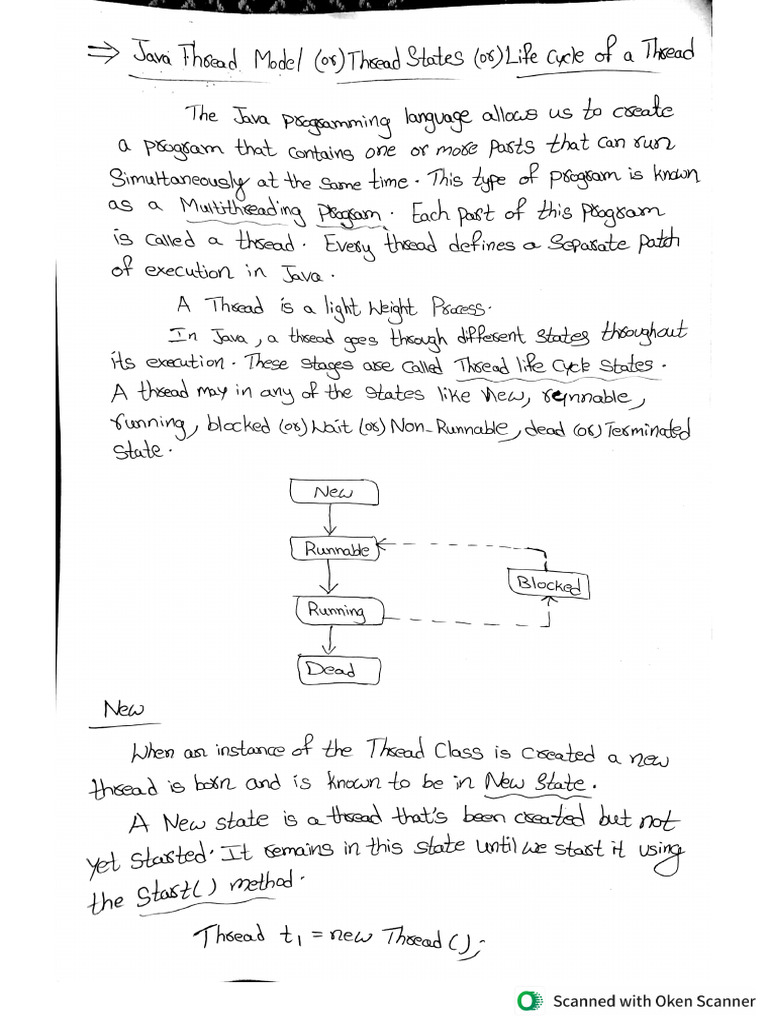 ⇒ Java Thread Model (or) Thread States (or) Life Cycle of a Thread
The Java programming language allows us to create
a program that contains one or more parts that can run
Simultaneously at the same time. This type of program is known
as a Multithreading Program. Each part of this Program
is called a thread. Every thread defines a Separate Path
of execution in Java.
A Thread is a light Weight Process.
In Java, a thread goes through different States throughout
its execution. These stages are called Thread life Cycle States.
A thread may in any of the States like New, reynnable,
running, blocked (or) Wait (or) Non-Runnable, dead (or) Terminated
State.
New
Runnable
Blocked
Running
Dead
New
When an instance of the Thread Class is created a new
thread is born and is known to be in New State.
A New state is a thread that's been created but not
yet Started. It remains in this state until we start it using
the Start() method.
Thread t1 = new Thread();
Scanned with Oken Scanner